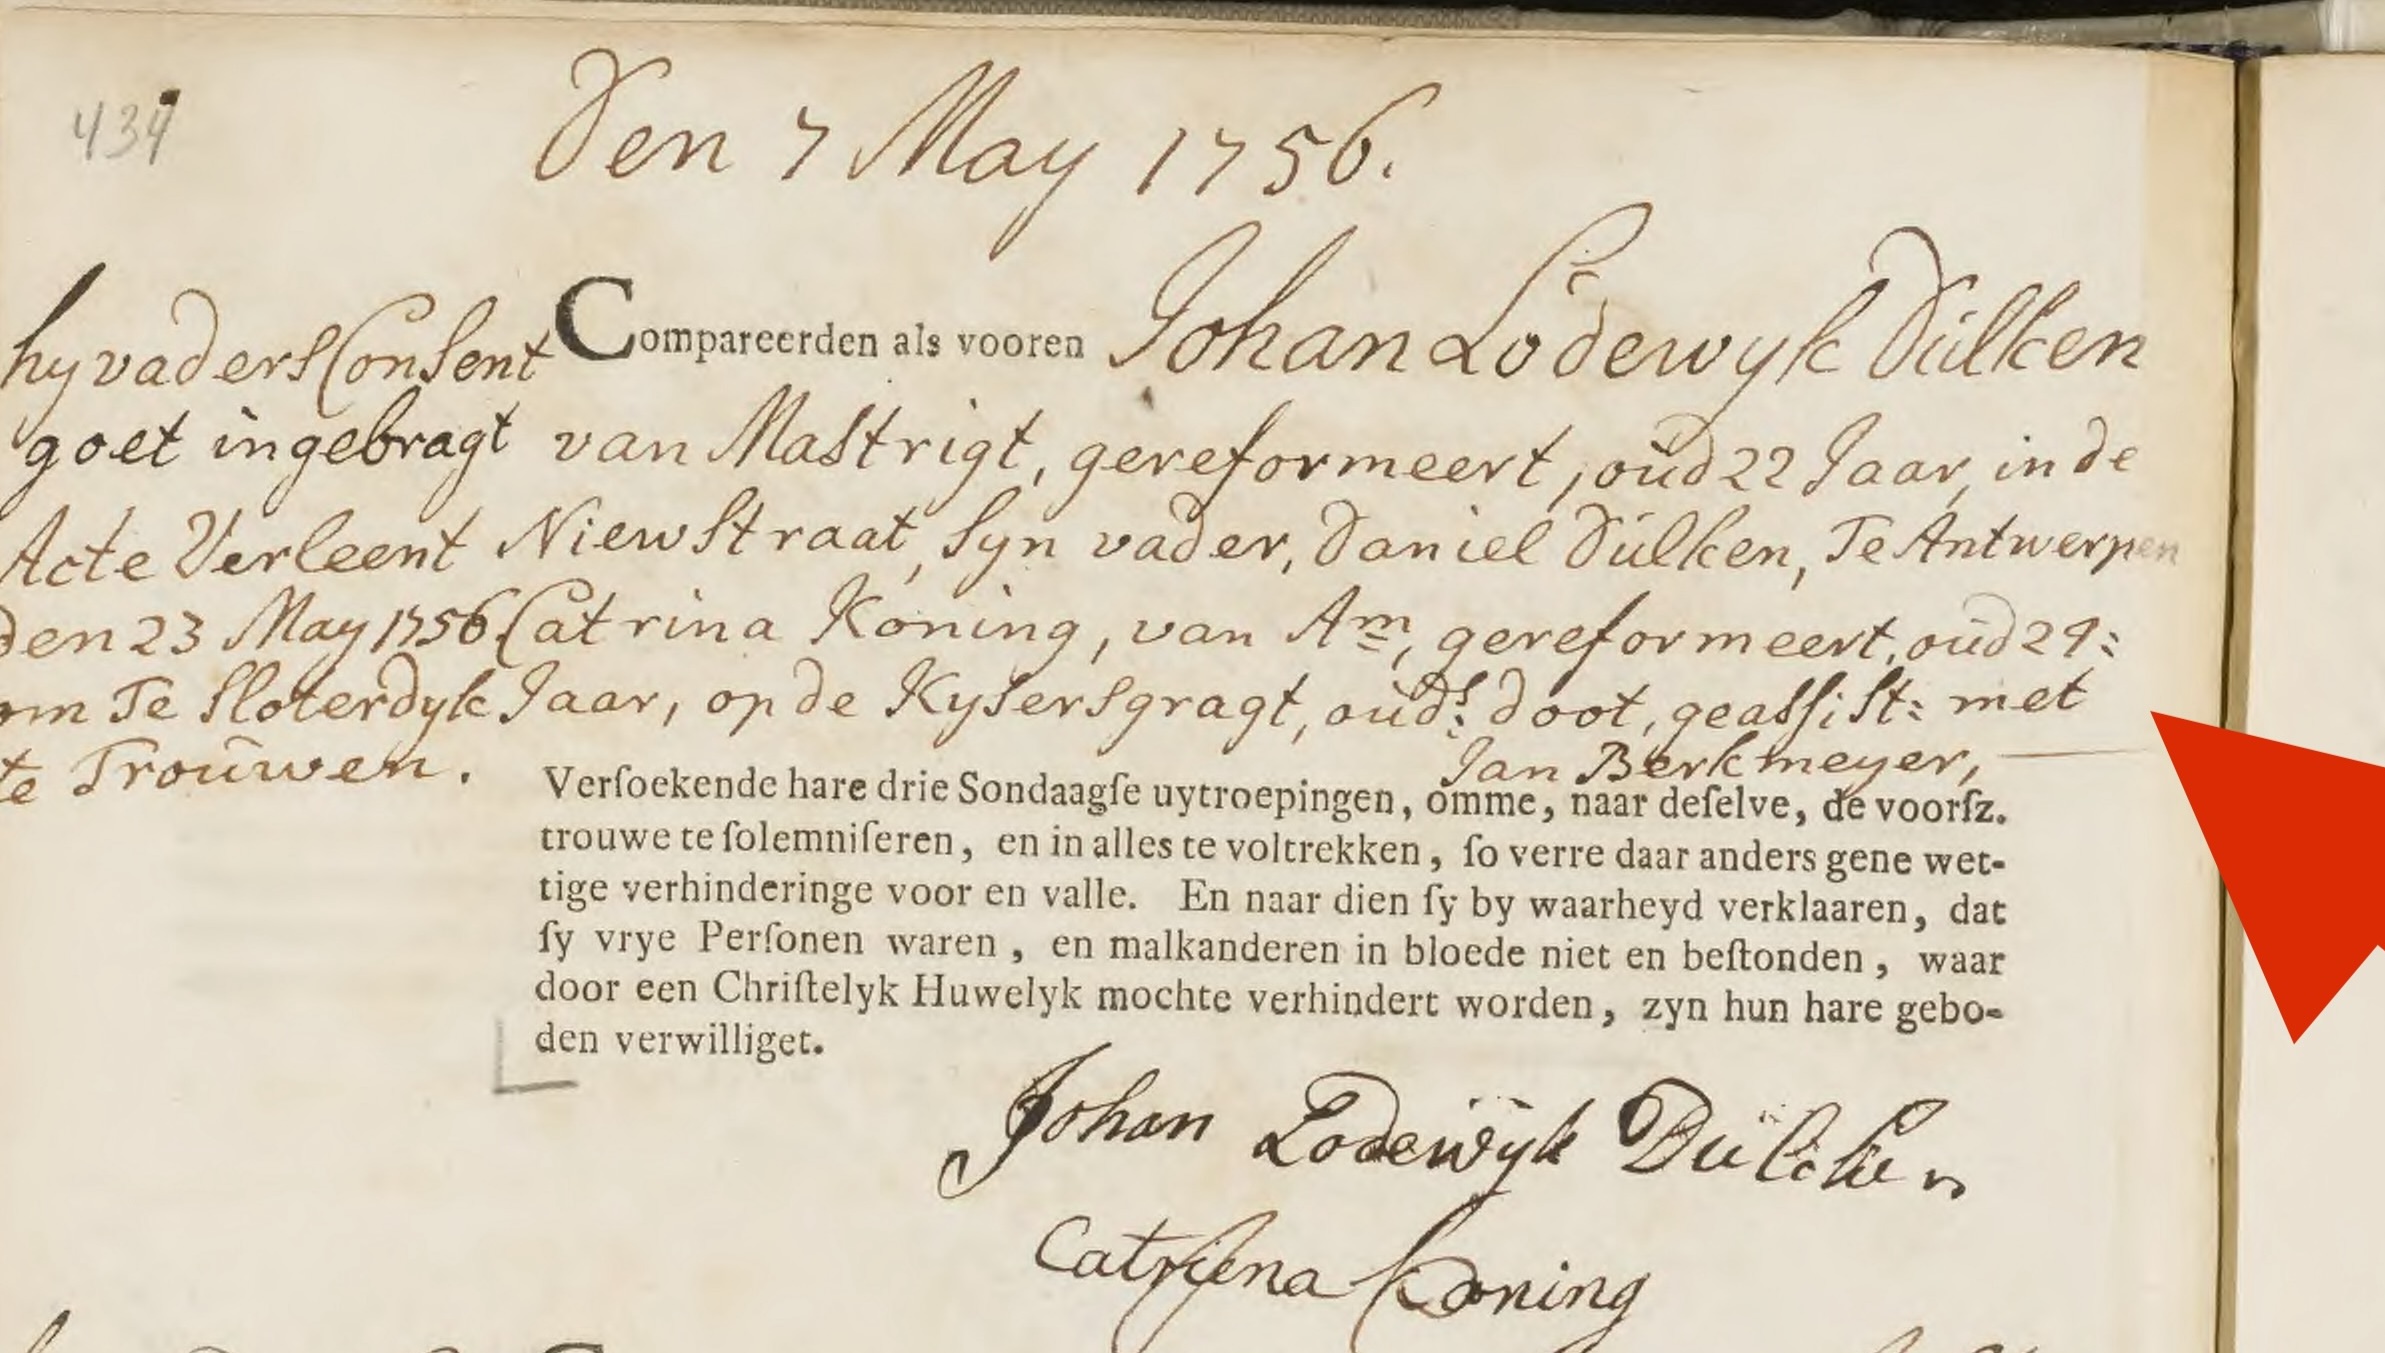 434
Den 7 May 1756.
hy vaders Consent
goet ingebragt
Acte Verleent
den 23 May 1756
om Te Sloterdyk
te Trouwen.
Compareerden als vooren Johan Lodewyk Dülken
van Mastrigt, gereformeert, oud 22 Jaar, in de
Niewstraat, Syn vader, Daniel Dülken, Te Antwerpen
Catrina Koning, van Am, gereformeert, oud 29:
Jaar, op de Kysersgragt, ouds: doot, geassist: met
Jan Berkmeyer,
Verſoekende hare drie Sondaagſe uytroepingen, omme, naar deſelve, de voorſz.
trouwe te ſolemniſeren, en in alles te voltrekken, ſo verre daar anders gene wet-
tige verhinderinge voor en valle. En naar dien ſy by waarheyd verklaaren, dat
ſy vrye Perſonen waren, en malkanderen in bloede niet en beſtonden, waar
door een Chriſtelyk Huwelyk mochte verhindert worden, zyn hun hare gebo-
den verwilliget.
Johan Lodewÿk Dülcken
Catrijena Koning